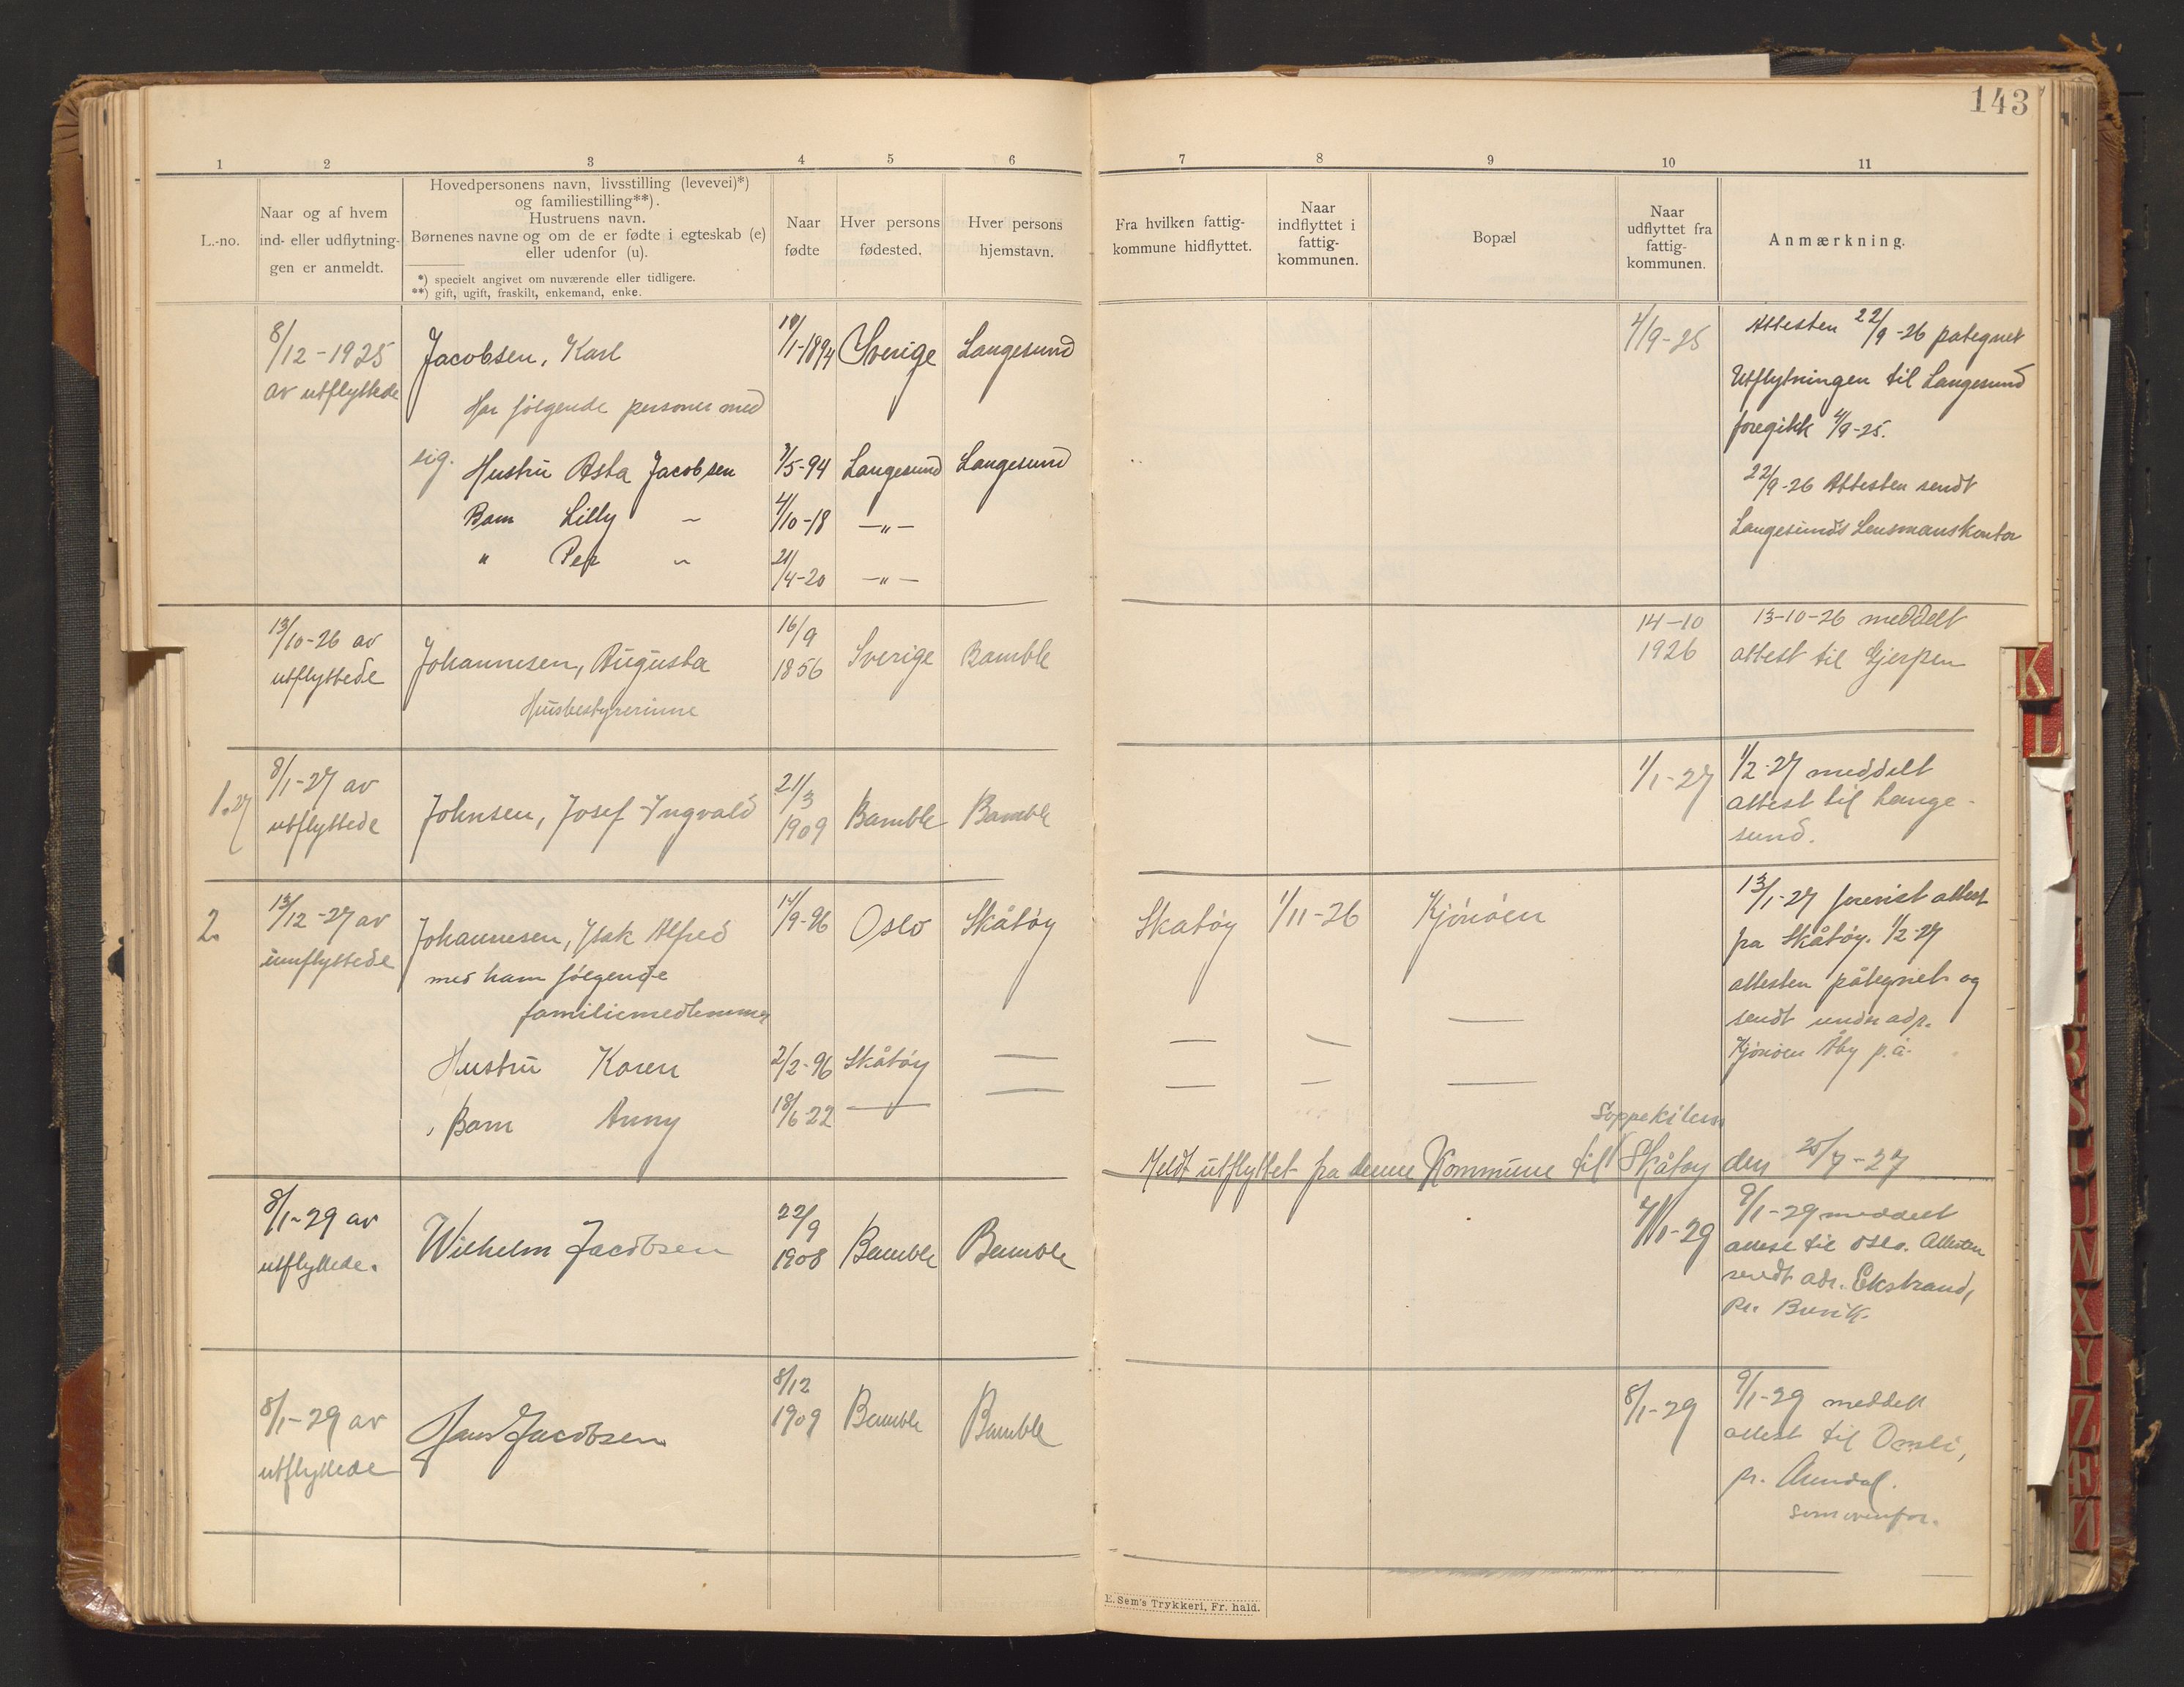 143
1
2
3
4
5
6
7
8
9
10
11
L.-no.
Naar og af hvem
ind- eller udflytnin-
gen er anmeldt.
Hovedpersonens navn, livsstilling (levevei)*)
og familiestilling**).
Hustruens navn.
Børnenes navne og om de er fødte i egteskab (e)
eller udenfor (u).
*) specielt angivet om nuværende eller tidligere.
**) gift, ugift, fraskilt, enkemand, enke.
Naar
fødte
Hver persons
fødested.
Hver persons
hjemstavn.
Fra hvilken fattig-
kommune hidflyttet.
Naar
indflyttet i
fattig-
kommunen.
Bopæl
Naar
udflyttet fra
fattig-
kommunen.
Anmærkning.
8/12-1925
av utflyttede
Jacobsen, Karl
Har følgende personer med
sig.
10/1-1894 Sverige Langesund
Hustru Asta Jacobsen 7/5-94 Langesund Langesund
Barn Lilly ~ 4/10-18 —"—
" Per ~ 21/4-20 —"—
4/9-25
Attesten 22/9-26 pategnet
Utflytningen til Langesund
foregikk 4/9-25.
22/9-26 Attesten sendt
Langesunds Lensmanskontor
13/10-26 av
utflyttede
Johannesen, Augusta
Husbestyrerinne
16/9
1856
Sverige Bamble
14-10
1926
13-10-26 meddelt
attest til Gjerpen
1.27
8/1-27 av
utflyttede
Johnsen, Josef Ingvald
21/3
1909
Bamble Bamble
1/1-27
1/2-27 meddelt
attest til Lange-
sund.
2.
13/12-27 av
innflyttede
Johannesen, Isak Alfred
med ham følgende
familiemedlemmer
14/9-96 Oslo Skåtøy
Skatøy 1/11-26 Kjønøen
13/1-27 forevist attest
fra Skåtøy. 1/2-27
attesten påtegnet og
sendt under adr.
Kjønøen Åby p.å.
Hustru Karen 2/2-96 Skåtøy — — — —
Barn Anny 18/6 22 — — — — —
Soppekilen
Meldt utflyttet fra denne Kommune til Skåtøy den 25/7-27
8/1-29 av
utflyttede.
Wilhelm Jacobsen
22/9
1908
Bamble Bamble
4/1-29
9/1-29 meddelt
attest til Oslo. Attesten
sendt adr. Ekstrand,
pr. Brevik.
8/1-29 av
utflyttede
Hans Jacobsen
8/12
1909
Bamble Bamble
8/1-29
9/1-29 meddelt
attest til Omli,
pr. Arendal.
som ovenfor.
E. Sem's Trykkeri, Fr. hald.
K
L
R
S
U
N
X
Y
Z
Æ